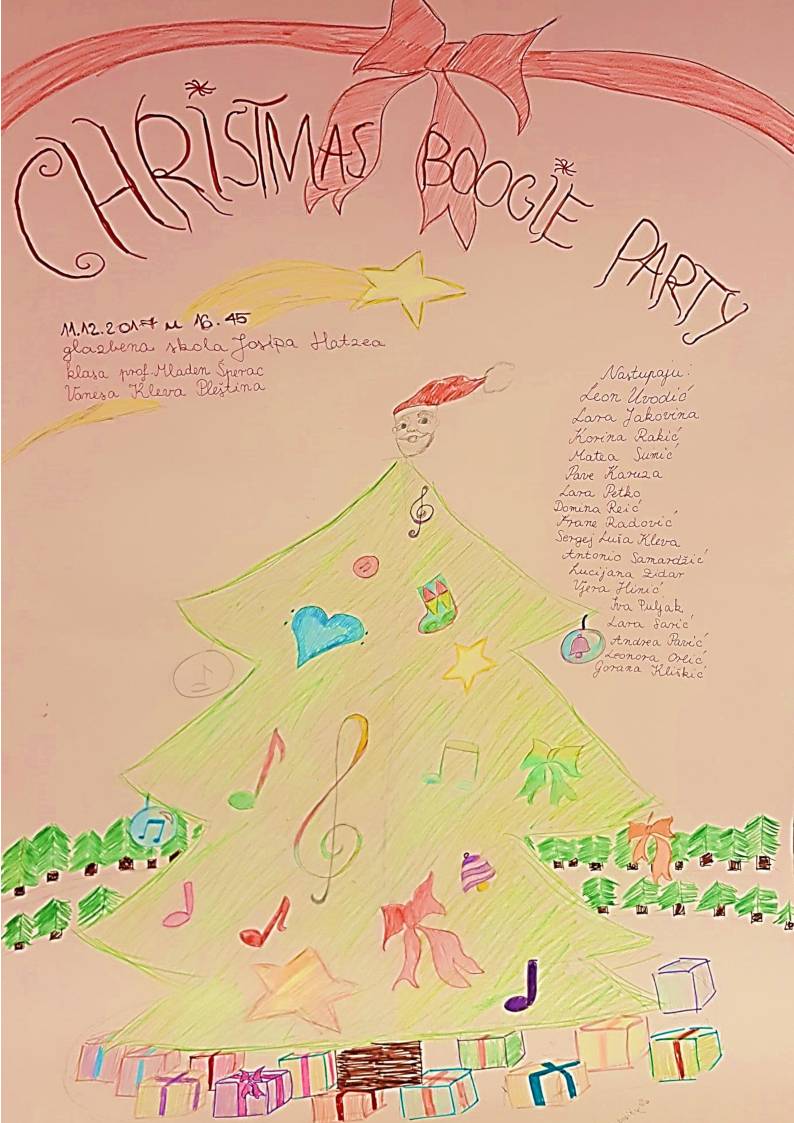 CHRISTMAS BOOGIE PARTY
11.12.2017 u 16.45
glazbena skola Josipa Hatzea
klasa prof. Mladen Šperac
Vanesa Kleva Pleština
Nastupaju:
Leon Uvodić
Lara Jakovina
Korina Rakić
Matea Sumić
Pave Karuza
Lara Petko
Domina Reić
Frane Radović
Sergej Luša Kleva
Antonio Samardžić
Lucijana Zidar
Vjera Hinić
Iva Puljak
Lara Sarić
Andrea Pavić
Leonora Orlić
Gorana Kliškić